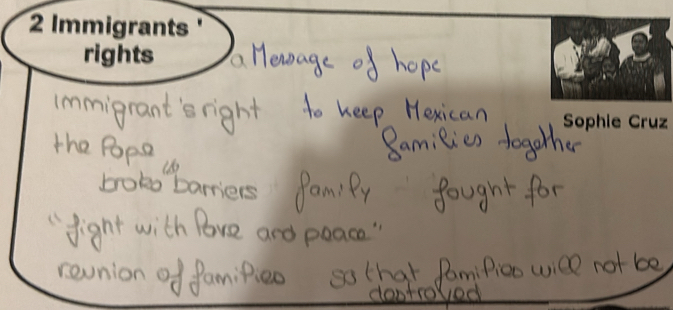 2 Immigrants'
rights
a Message of hope
immigrant's right to keep Mexican
families together
Sophie Cruz
the Pope
broke barriers family fought for
"fight with love and peace"
reunion of families so that families will not be
destroyed